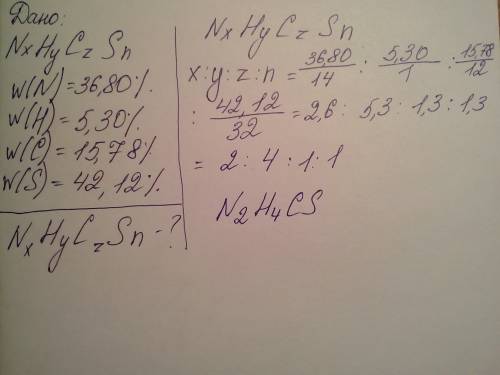 Дано:
NxHyCzSn
W(N)=36,80%.
W(H)=5,30%.
W(C)=15,78%.
W(S)=42,12%.
NxHyCzSn-?
NxHyCzSn
x:y:z:n=36,80/14:5,30/1:15,78/12
:42,12/32=2,6:5,3:1,3:1,3
=2:4:1:1
N2H4CS